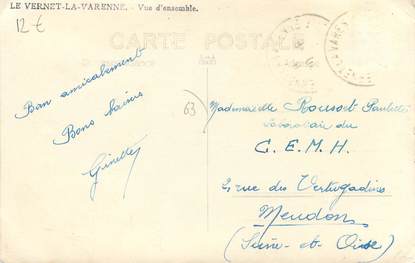 LE VERNET-LA-VARENNE. - Vue d'ensemble.
12 €
CARTE POSTALE
Bien amicalement
Bons baisers
Ginette
63
Mademoiselle Paulette
Laboratoire du
C. E. M. H.
rue des Vertugadins
Meudon
(Seine-et-Oise)